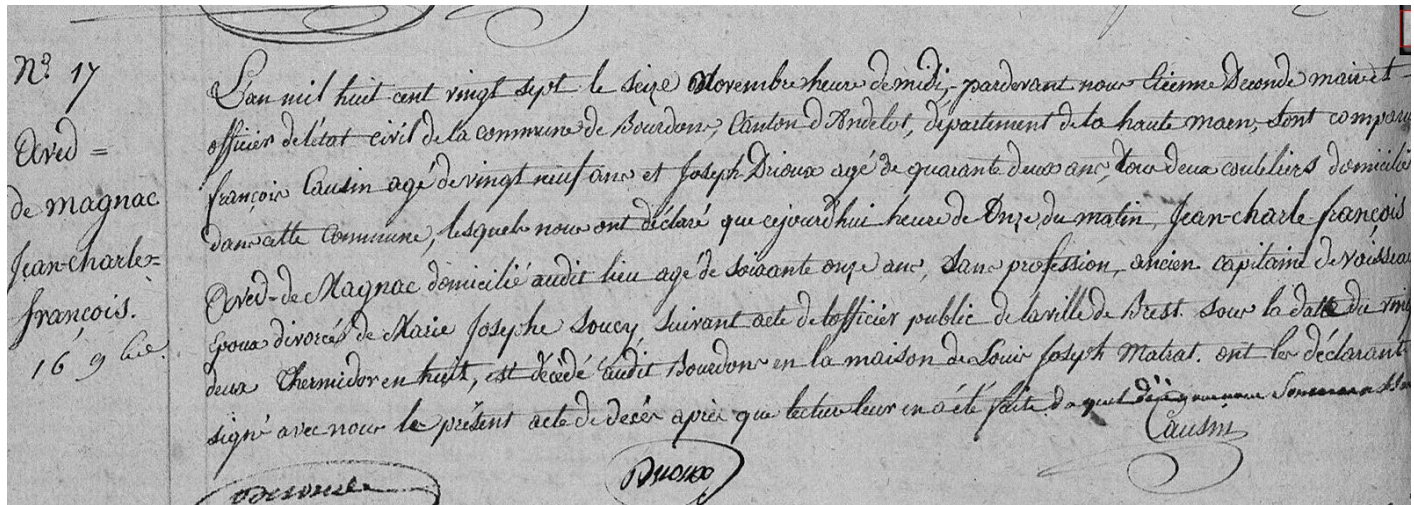 N.° 17
Aved =
de Magnac
Jean-charles=
françois.
16 9bre.
L'an mil huit cent vingt sept le seize Novembre heure de midi, pardevant nous Etienne Deconde maire et
officier de l'état civil de la commune de Bourdons, Canton d'Andelot, département de la haute marn, sont comparu
françois Causin agé de vingt neuf ans et Joseph Drioux agé de quarante deux ans, tous deux couteliers domicilié
dans cette Commune, lesquels nous ont déclaré que cejourd'hui heure de Onze du matin, Jean-charle-françois
Aved-de Magnac domicilié audit lieu agé de soixante onze ans, sans profession, ancien capitaine de vaisseau
époux divorcé de Marie Josephe Soucy suivant acte de l'officier public de la ville de Brest sous la datte du vingt
deux thermidor en huit, est décédé audit Bourdons en la maison de Louis Joseph Matrat. ont les déclarant
signé avec nous le présent acte de décès après que lecture leur en a été faite
Causin
Drioux